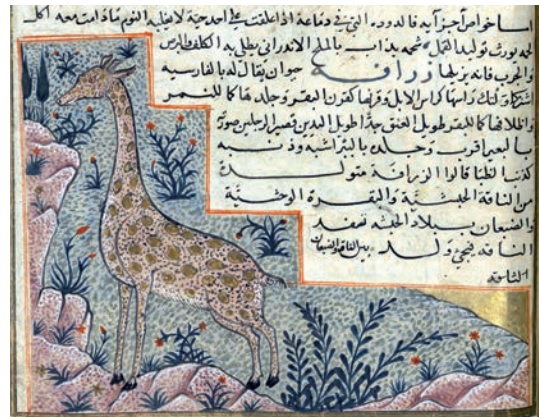 اما خواص اجزايه فالدوده التى فى دماغه اذا علقت على احد لا يغلبه النوم ما دامت معه اكل
لحمه يورث توليد القمل شحمه يذاب بالملح الاندرانى يطلى به الكلف والبرص
والجرب فانه يزيلها زرافة حيوان يقال له بالفارسيه
راسها كراس الابل وقرنها كقرن البقر وجلدها كما للنمر
واظلافها كما للبقر طويل العنق جدا طويل اليدين قصير الرجلين
بالبعير اقرب وجلده بالببر اشبه وذنبه
كذنب الظبا قالوا الزرافة متولدة
من الناقة الحبشية والبقرة الوحشية
والضبعان ببلاد الحبشه تسفد
الناقه فيجئ ولد بين الناقه والضبعان